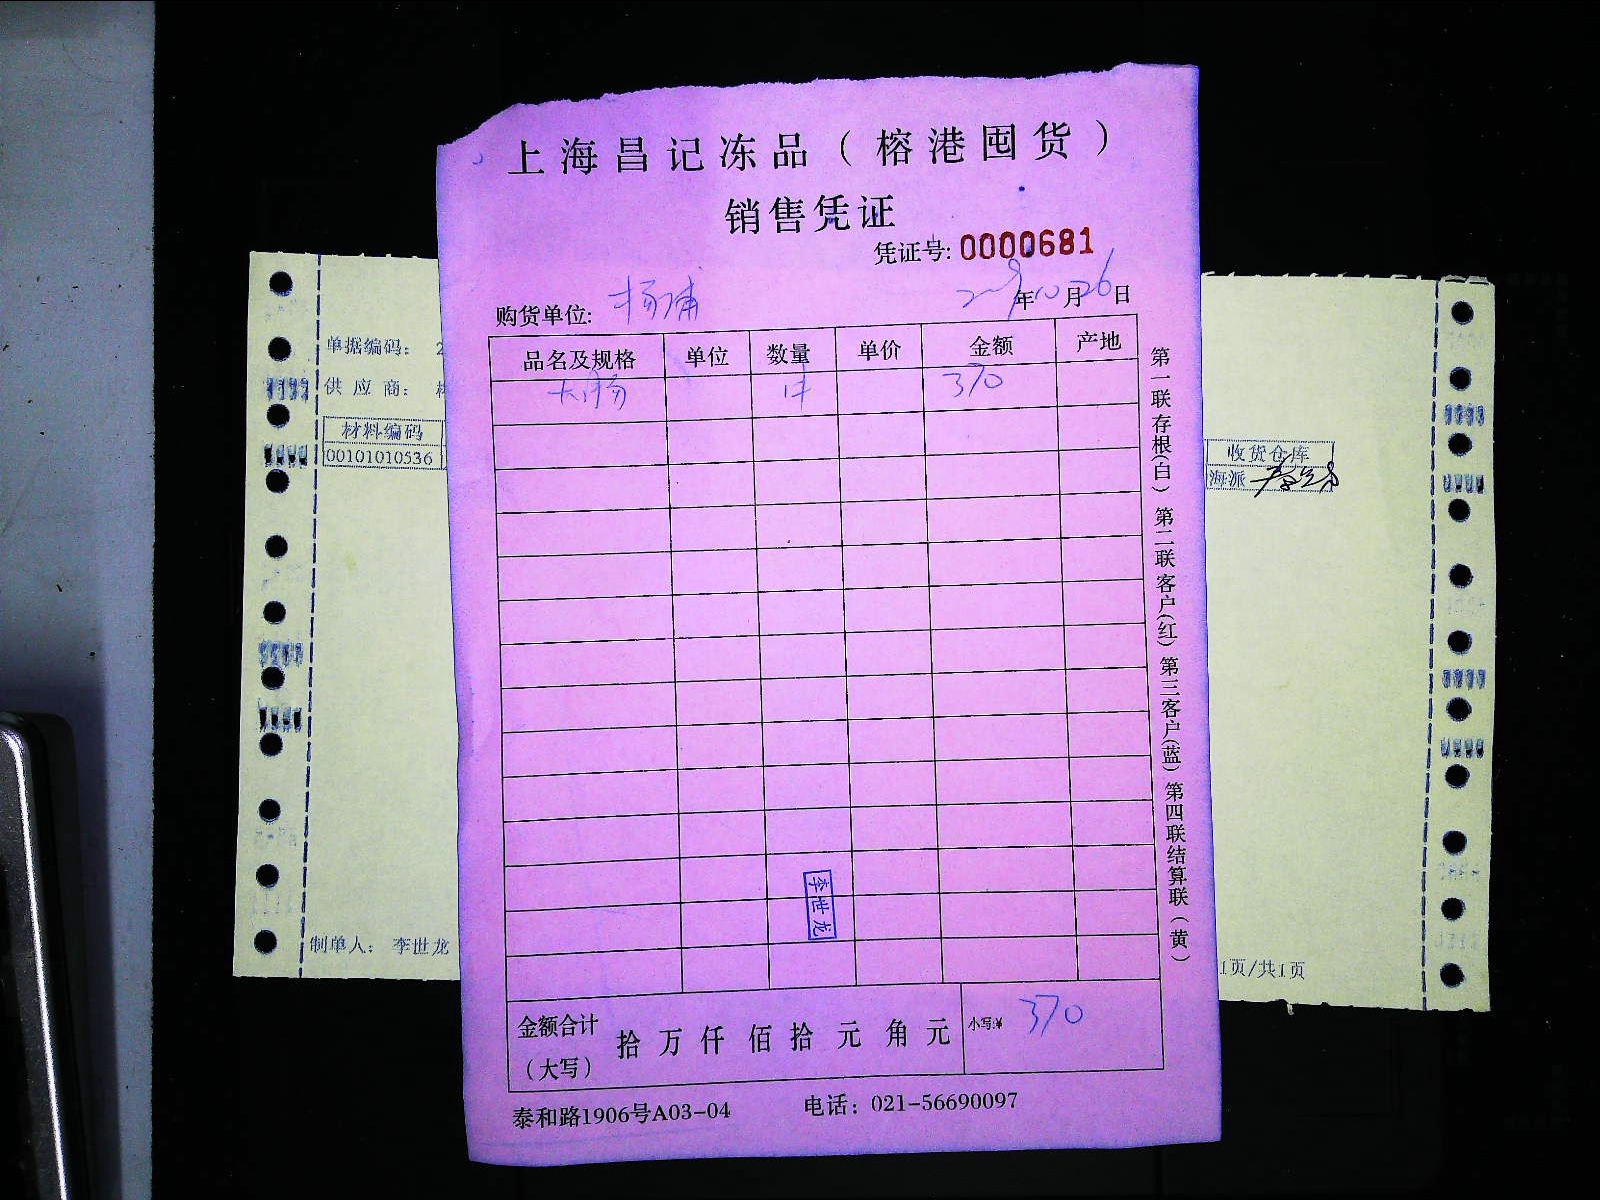 上海昌记冻品（榕港囤货）
销售凭证
凭证号: 0000681
购货单位: 杨浦 年10月26日
品名及规格 单位 数量 单价 金额 产地
大肠 1件 370
金额合计（大写） 拾万仟佰拾元角元 小写:¥ 370
泰和路1906号A03-04 电话：021-56690097
第一联存根(白) 第二联客户(红) 第三客户(蓝) 第四联结算联(黄)
李世龙
单据编码： 2
供应商：
材料编码
00101010536
制单人： 李世龙
收货仓库
海派
1页/共1页